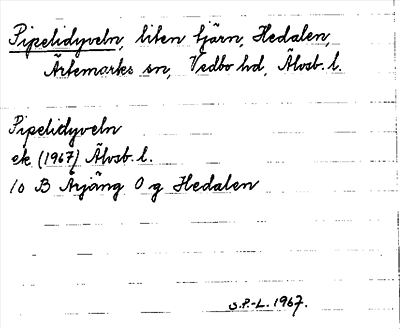 Pipelidyveln, liten tjärn, Hedalen,
Ärtemarks sn, Vedbo hd, Älvsb. l.
Pipelidyveln
ek. (1967) Älvsb. l.
10 B Årjäng 0 g Hedalen
S.P.-L. 1967.